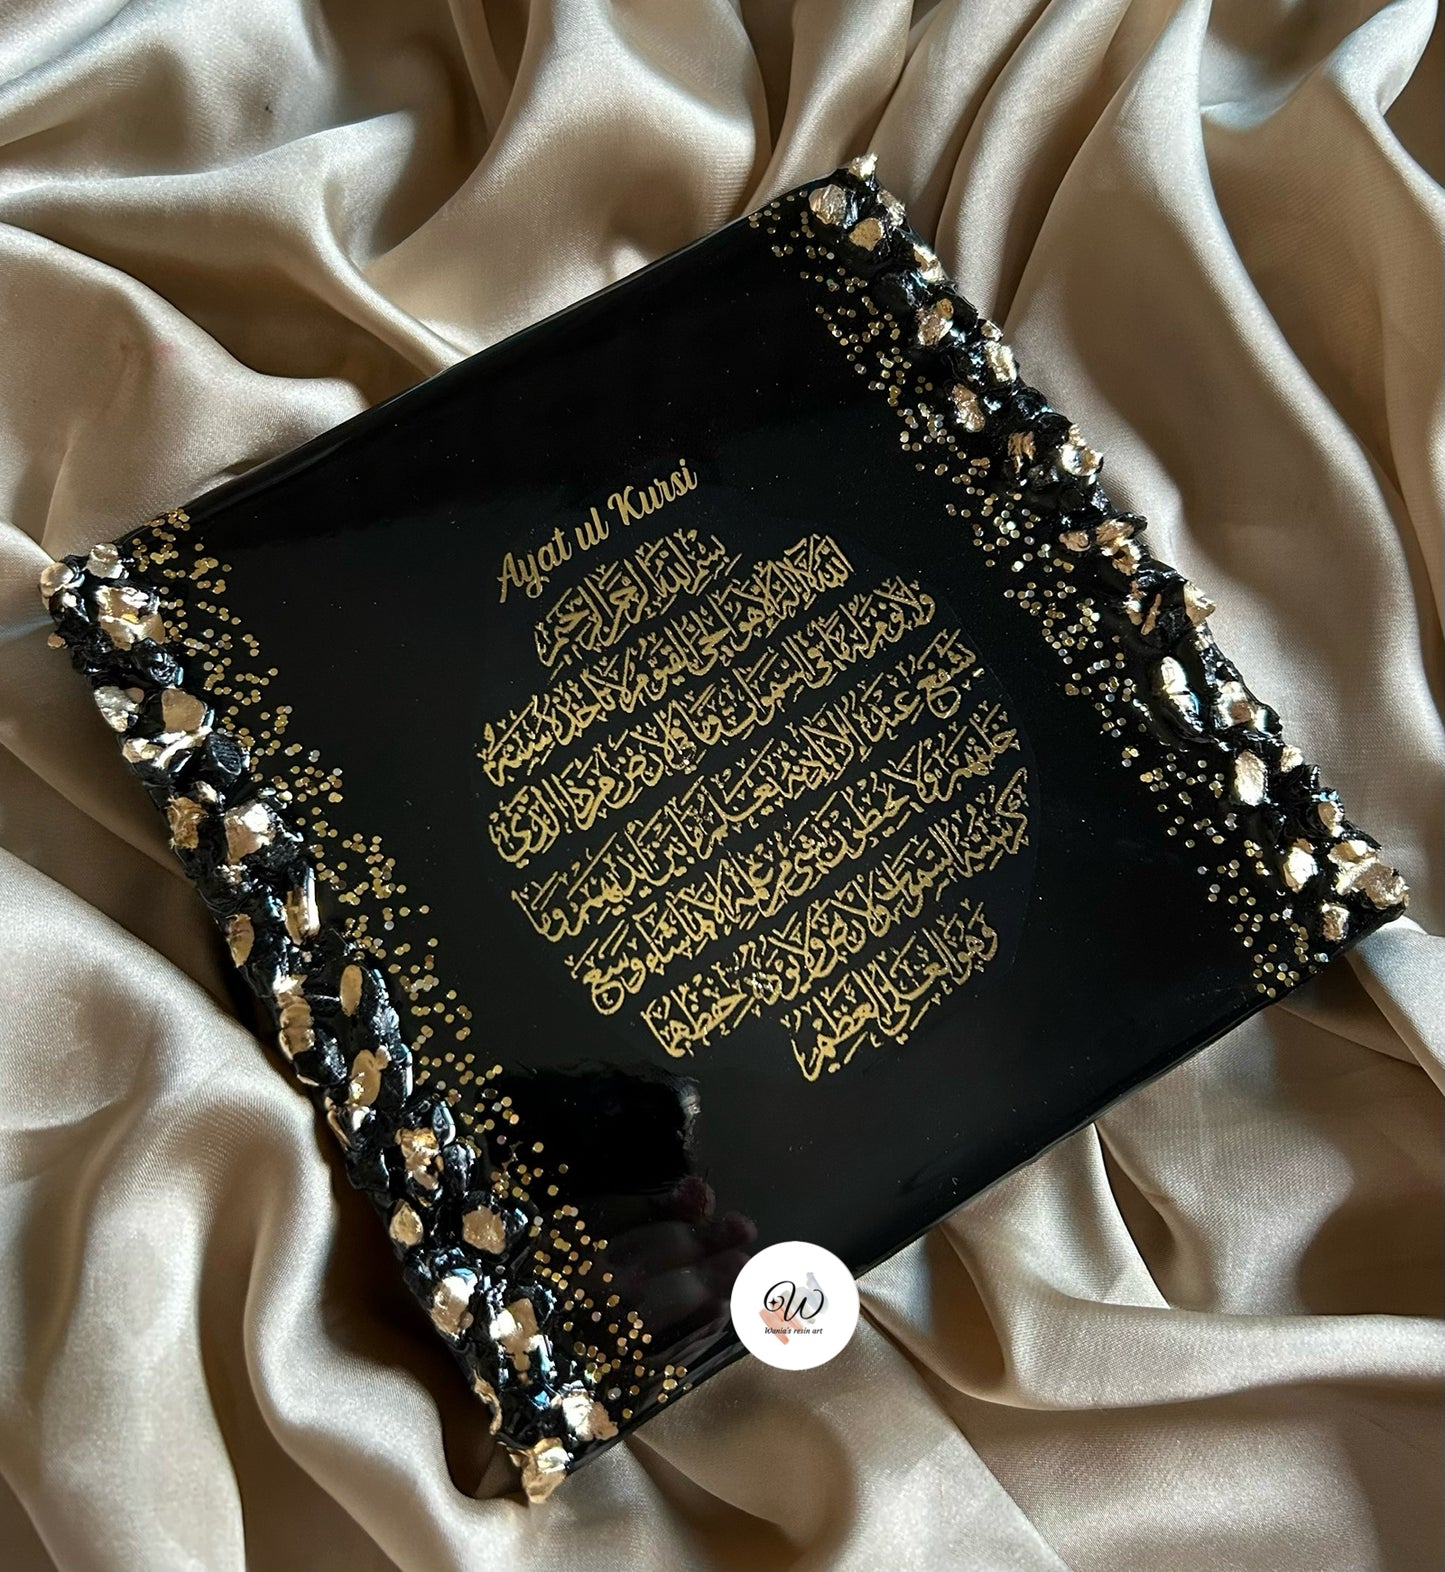 Ayat ul Kursi
بِسْمِ اللهِ الرَّحْمٰنِ الرَّحِيْمِ
اَللهُ لَا اِلٰهَ اِلَّا هُوَ الْحَيُّ الْقَيُّوْمُ لَا تَأْخُذُهٗ سِنَةٌ
وَّلَا نَوْمٌ لَهٗ مَا فِي السَّمٰوٰتِ وَمَا فِي الْاَرْضِ مَنْ ذَا الَّذِيْ
يَشْفَعُ عِنْدَهٗ اِلَّا بِاِذْنِهٖ يَعْلَمُ مَا بَيْنَ اَيْدِيْهِمْ وَمَا
خَلْفَهُمْ وَلَا يُحِيْطُوْنَ بِشَيْءٍ مِّنْ عِلْمِهٖ اِلَّا بِمَا شَاءَ وَسِعَ
كُرْسِيُّهُ السَّمٰوٰتِ وَالْاَرْضَ وَلَا يَئُوْدُهٗ حِفْظُهُمَا
وَهُوَ الْعَلِيُّ الْعَظِيْمُ
W
Wania's resin art